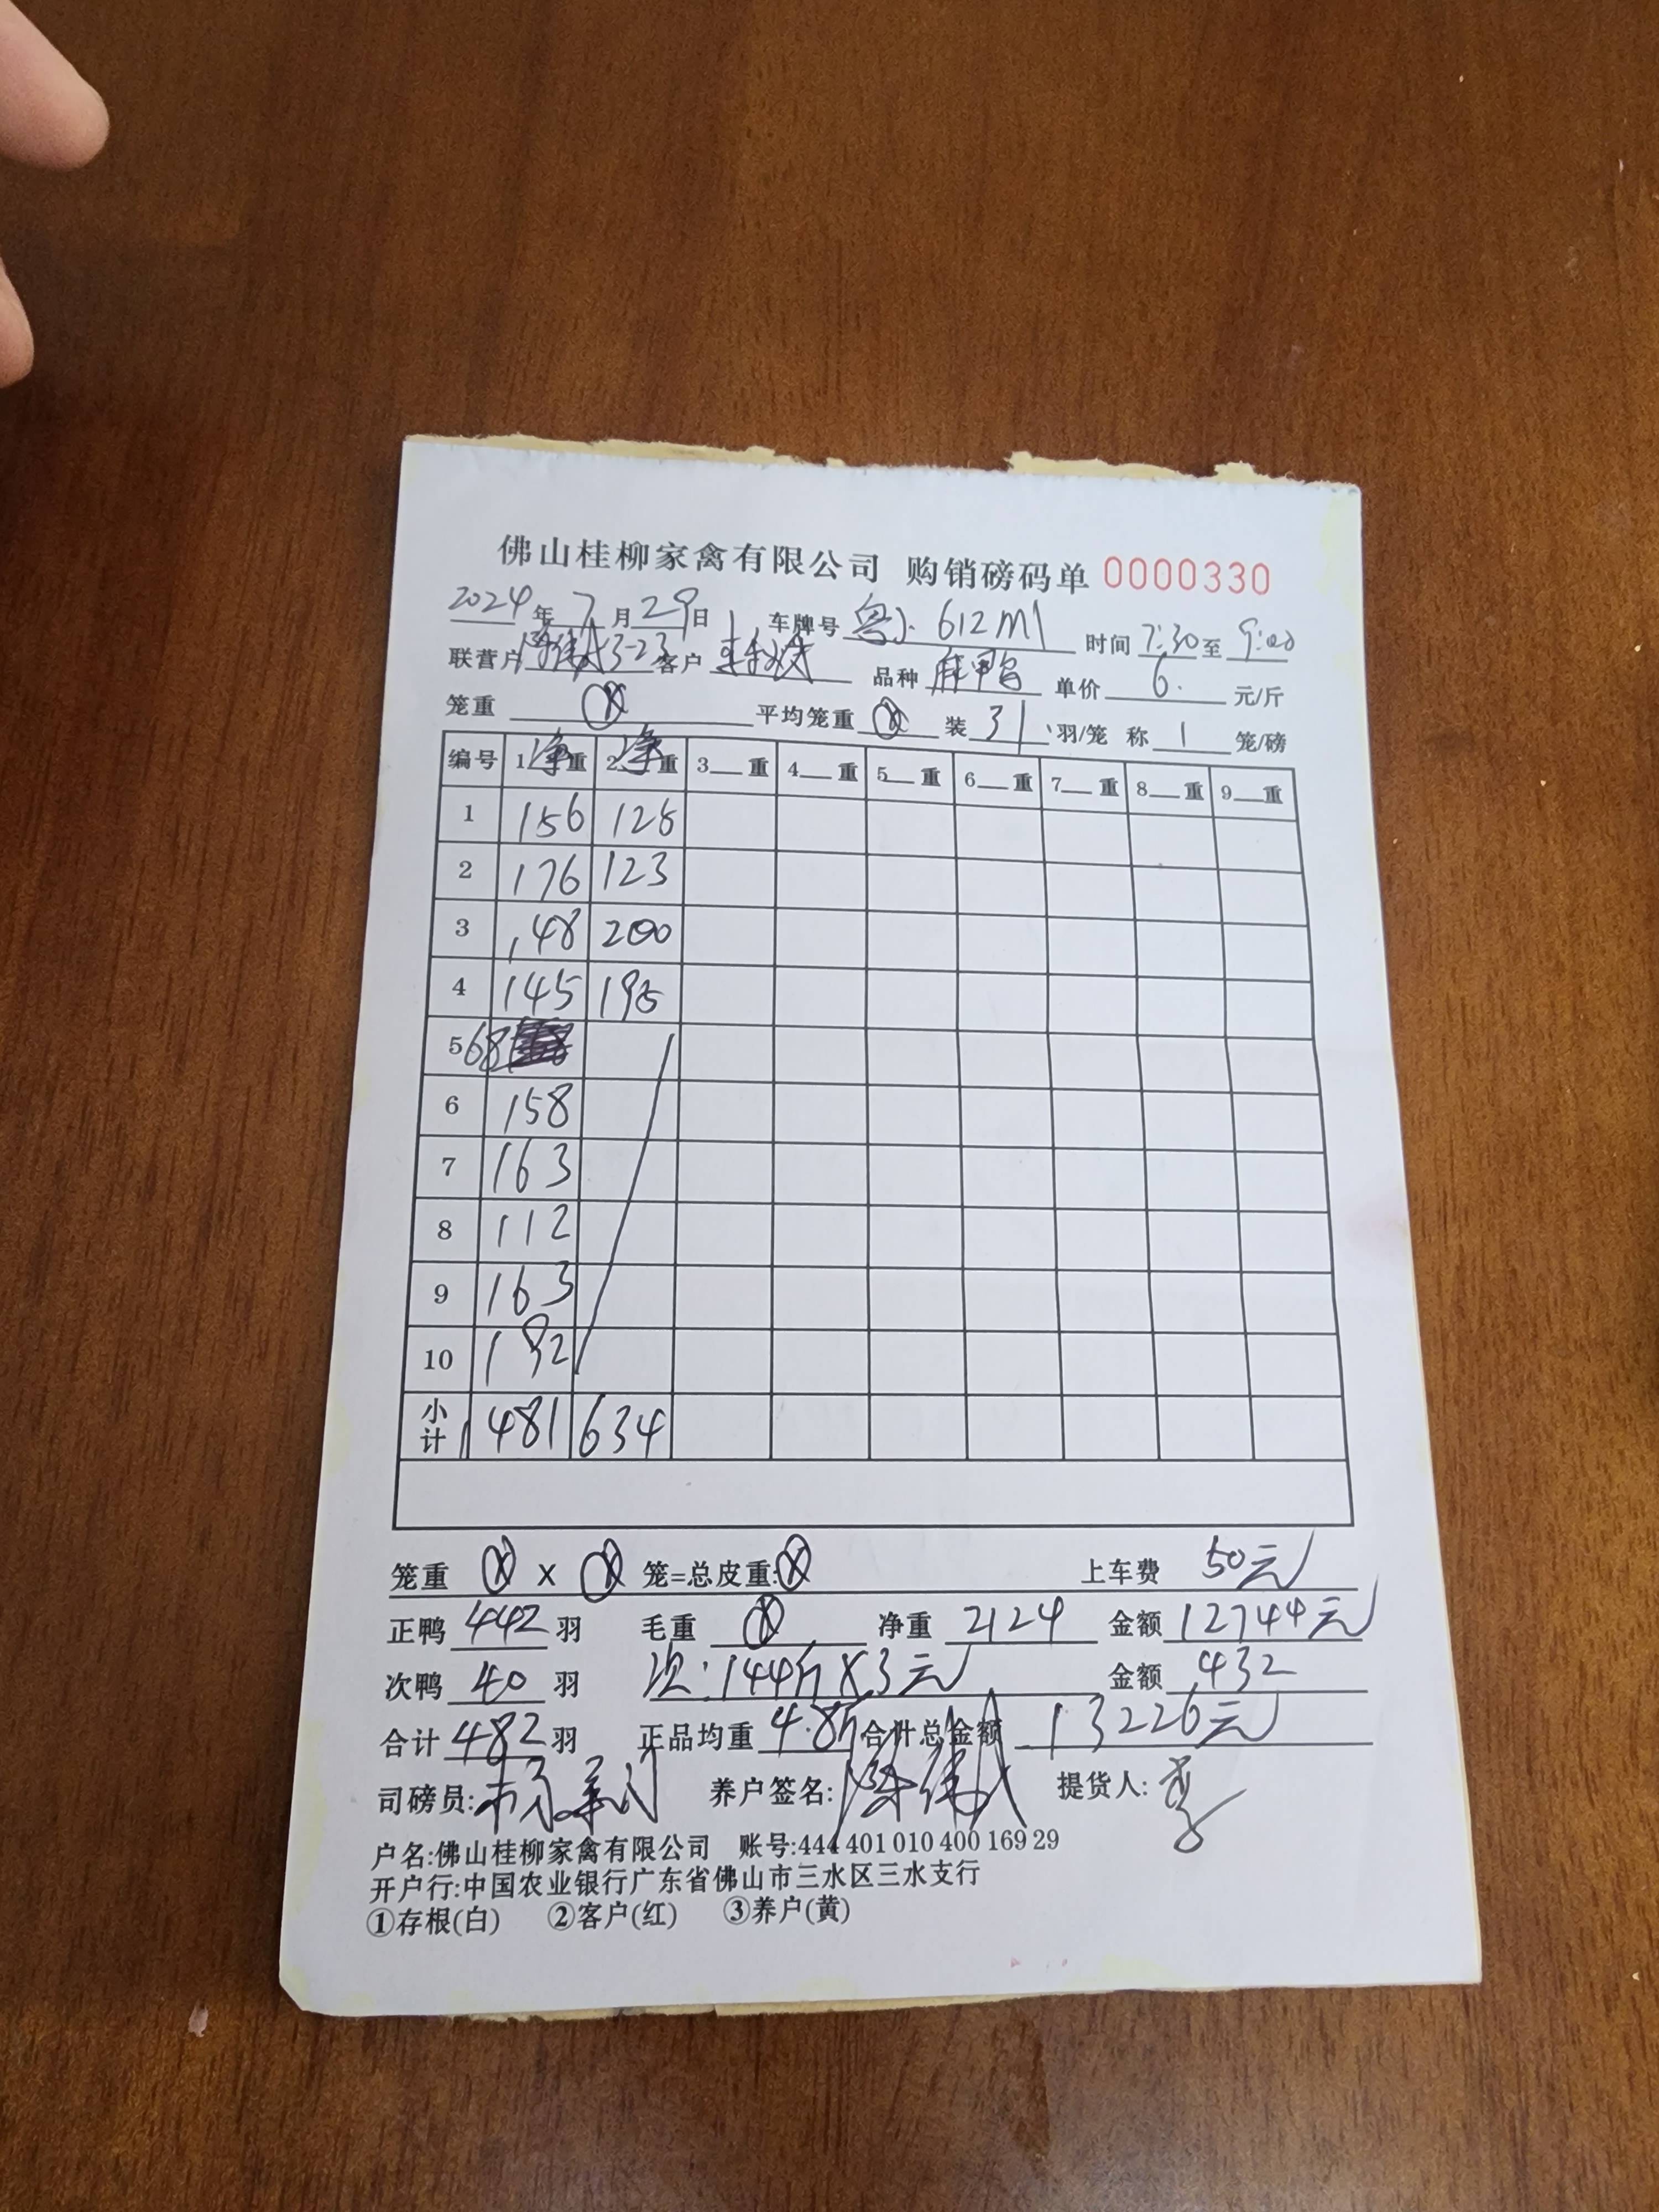 佛山桂柳家禽有限公司 购销磅码单 0000330
2024年7月29日 车牌号 粤J·612M1 时间 7:30至9:00
联营户 3-23 客户 品种 麻甲鸟 单价 6. 元/斤
笼重 平均笼重 装 31 羽/笼 称 1 笼/磅
编号 1净重 2净重 3__重 4__重 5__重 6__重 7__重 8__重 9__重
1 156 125
2 176 123
3 148 200
4 145 195
5 68
6 158
7 163
8 112
9 163
10 192
小计 1481 634
笼重 X 笼=总皮重: 上车费 50元
正鸭 442 羽 毛重 净重 2124 金额 12744元
次鸭 40 羽 次:144斤X3元 金额 432
合计 482 羽 正品均重 4.8斤 合计总金额 13226元
司磅员: 养户签名: 提货人:
户名:佛山桂柳家禽有限公司 账号:444 401 010 400 169 29
开户行:中国农业银行广东省佛山市三水区三水支行
①存根(白) ②客户(红) ③养户(黄)